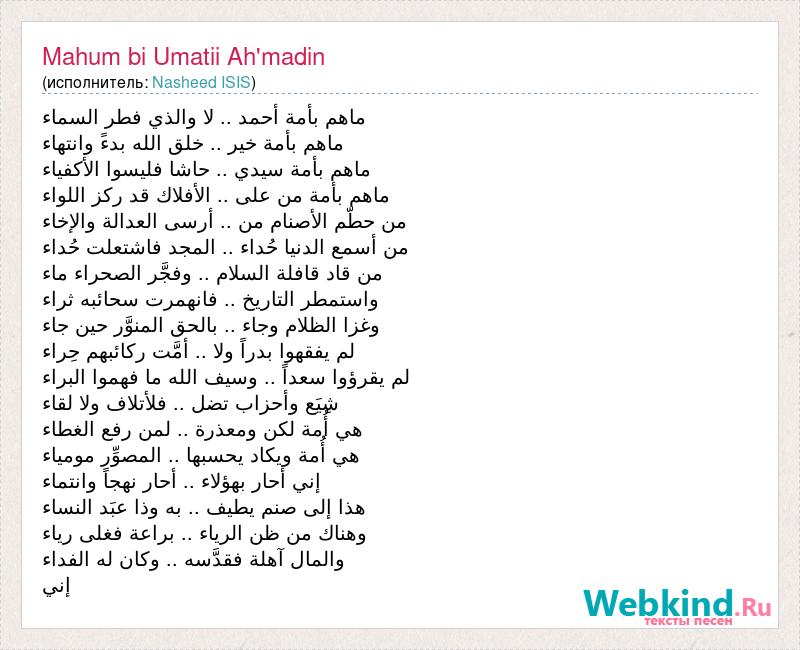 Mahum bi Umatii Ah'madin
(исполнитель: Nasheed ISIS)
ماهم بأمة أحمد .. لا والذي فطر السماء
ماهم بأمة خير .. خلق الله بدءً وانتهاء
ماهم بأمة سيدي .. حاشا فليسوا الأكفياء
ماهم بأمة من على .. الأفلاك قد ركز اللواء
من حطّم الأصنام من .. أرسى العدالة والإخاء
من أسمع الدنيا حُداء .. المجد فاشتعلت حُداء
من قاد قافلة السلام .. وفجَّر الصحراء ماء
واستمطر التاريخ .. فانهمرت سحائبه ثراء
وغزا الظلام وجاء .. بالحق المنوَّر حين جاء
لم يفقهوا بدراً ولا .. أمَّت ركائبهم حِراء
لم يقرؤوا سعداً .. وسيف الله ما فهموا البراء
شِيَع وأحزاب تضل .. فلأتلاف ولا لقاء
هي أُمة لكن ومعذرة .. لمن رفع الغطاء
هي أُمة ويكاد يحسبها .. المصوِّر مومياء
إني أحار بهؤلاء .. أحار نهجاً وانتماء
هذا إلى صنم يطيف .. به وذا عبَد النساء
وهناك من ظن الرياء .. براعة فغلى رياء
والمال آهلة فقدَّسه .. وكان له الفداء
إني
Webkind.Ru
тексты песен